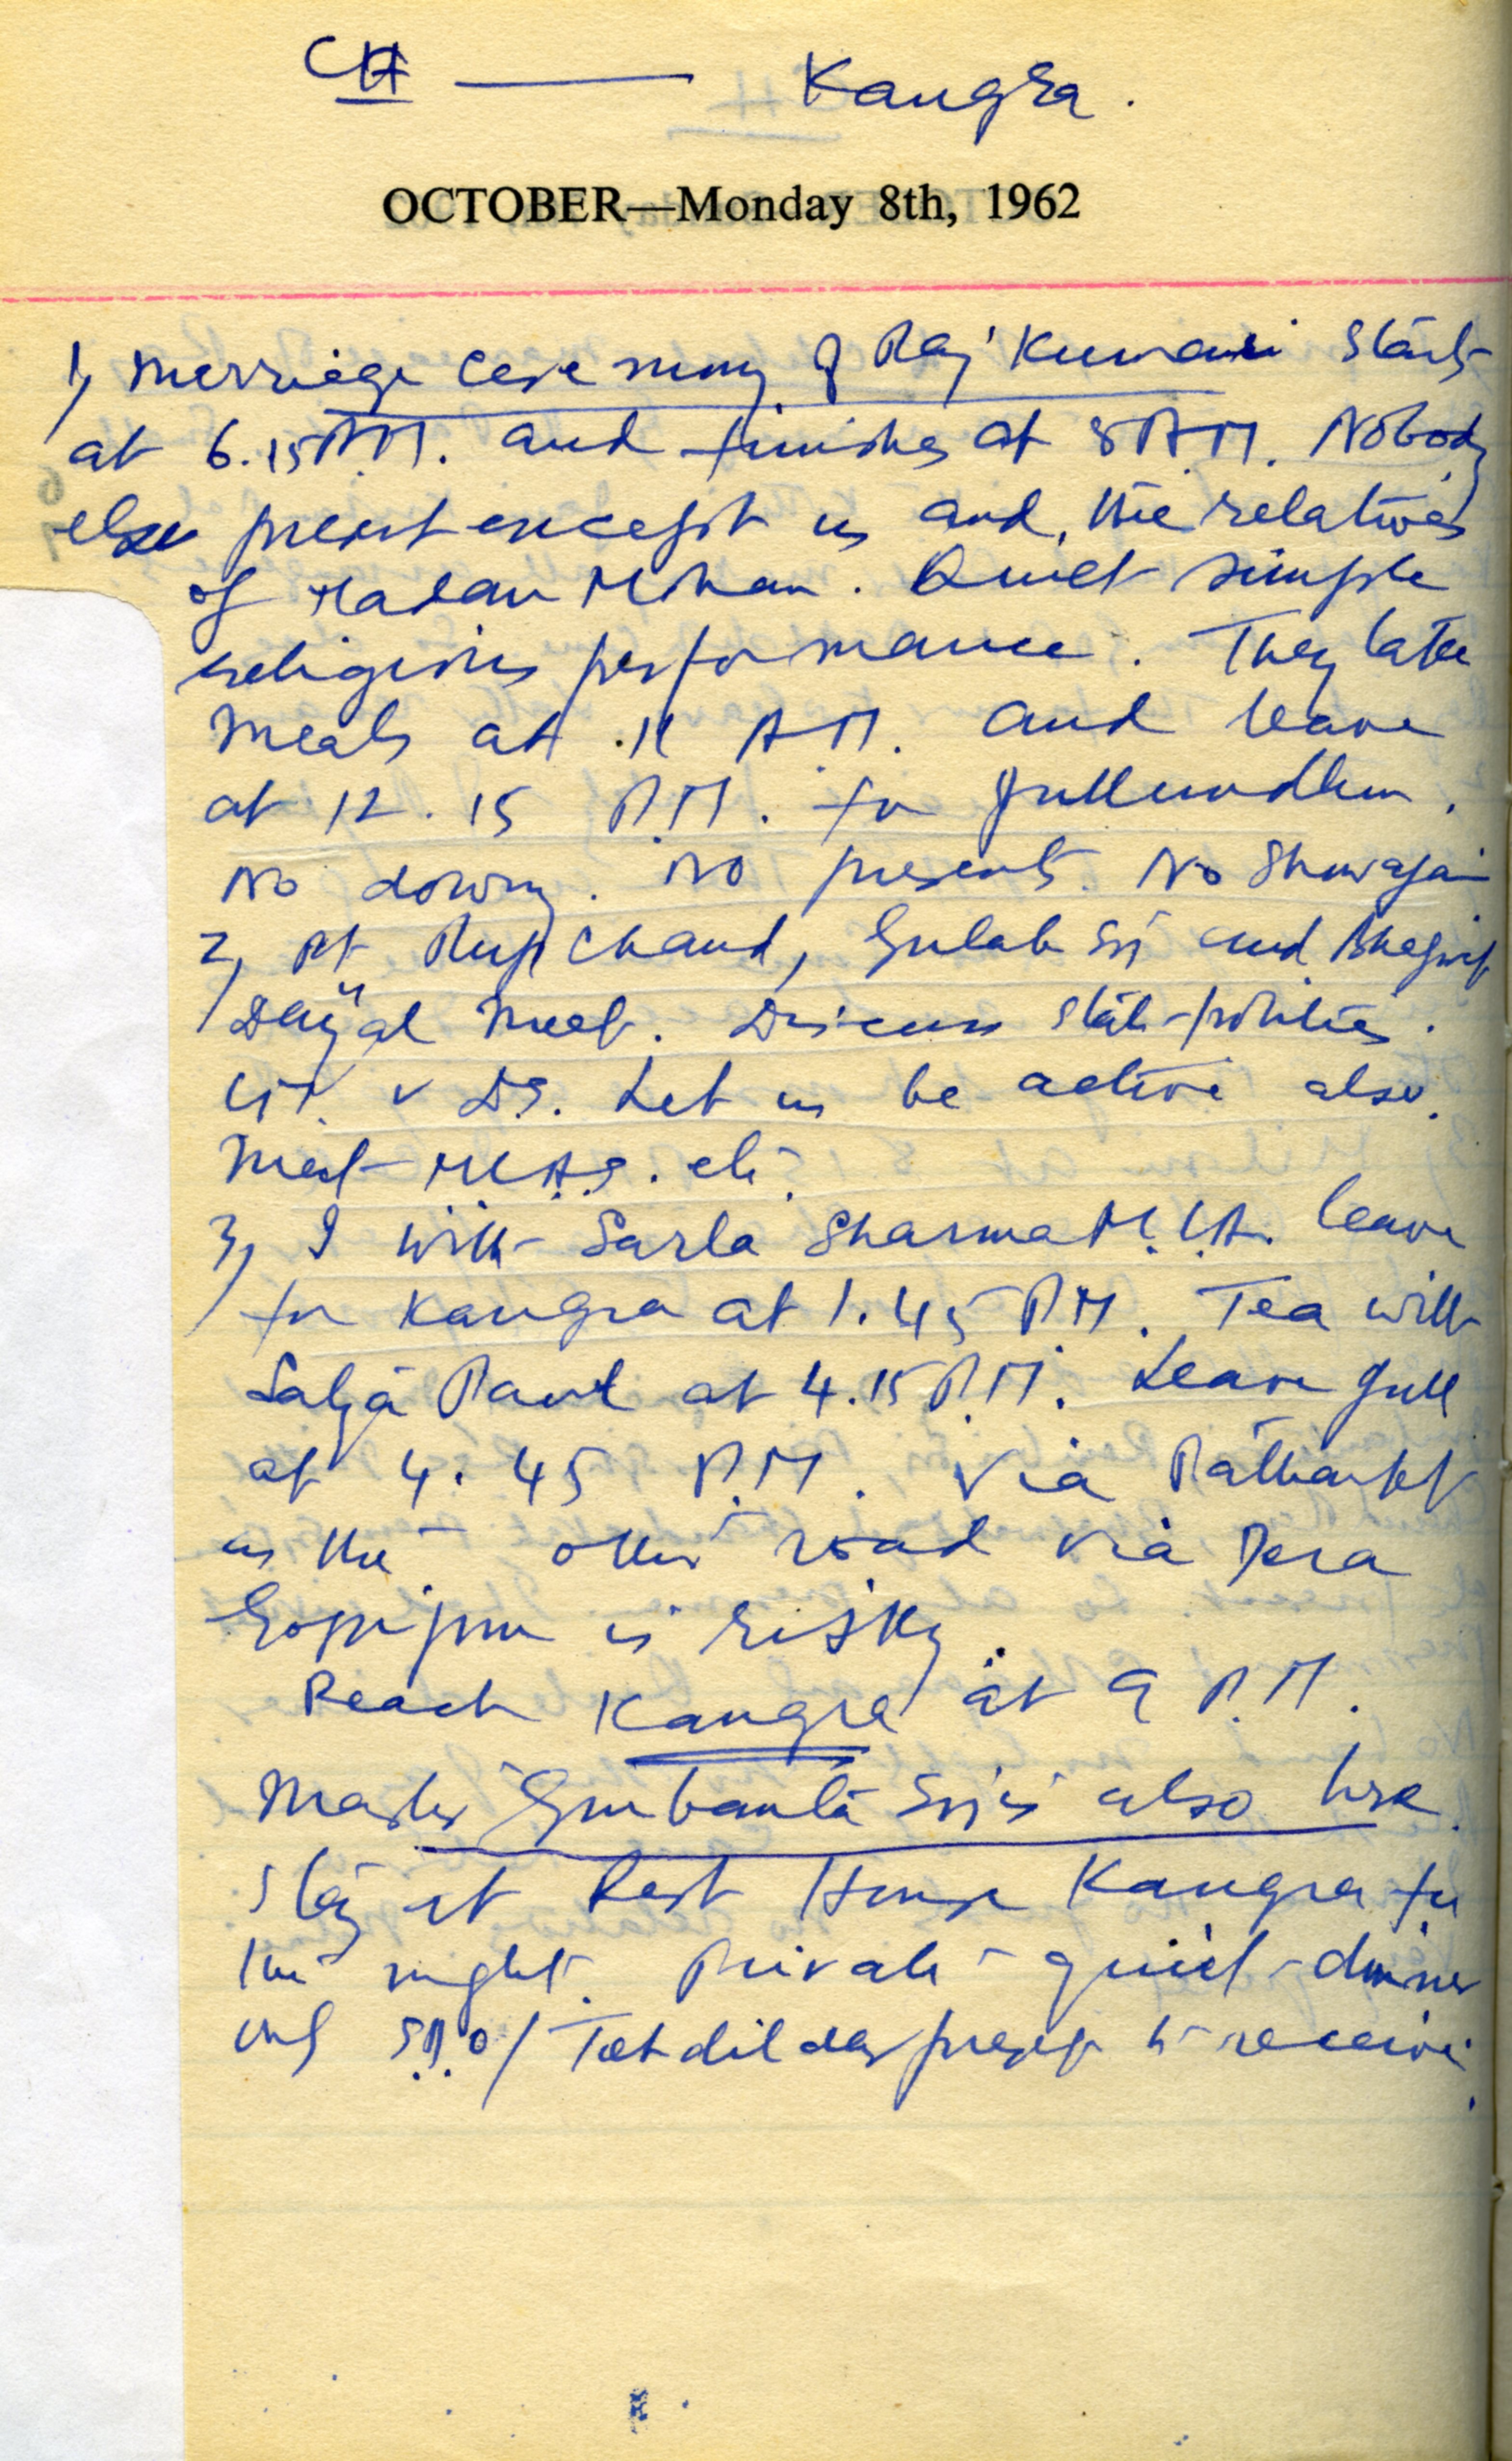 CH — Kangra.
OCTOBER—Monday 8th, 1962
1, Merriege Ceremony of Raj Kumari starts
at 6.15 A.M. and finishes at 8 A.M. Nobody
else present except us and the relatives
of Madan Mohan. Quiet simple
religious performance. They take
meals at 11 A.M. and leave
at 12.15 P.M. for Jullundhur.
No dowry. No presents. No
2, Pt Rup Chand, Gulab Sij and Bhagwat
Dayal meet. Discuss state-politics.
v DS. Let us be active also.
Meet M.L.A.S. etc.
3, I with Sarla Sharma M.L.A. leave
for Kangra at 1.45 P.M. Tea with
Satya Paul at 4.15 P.M. Leave Jull
at 4.45 P.M. via Pathankot
as the other road via Dera
Gopipur is risky.
Reach Kangra at 9 P.M.
Master Gurbanta Sij is also here.
Stay at Rest House Kangra for
the night. Private quiet-dinner
only S.D.O/Tehdildar present to receive.